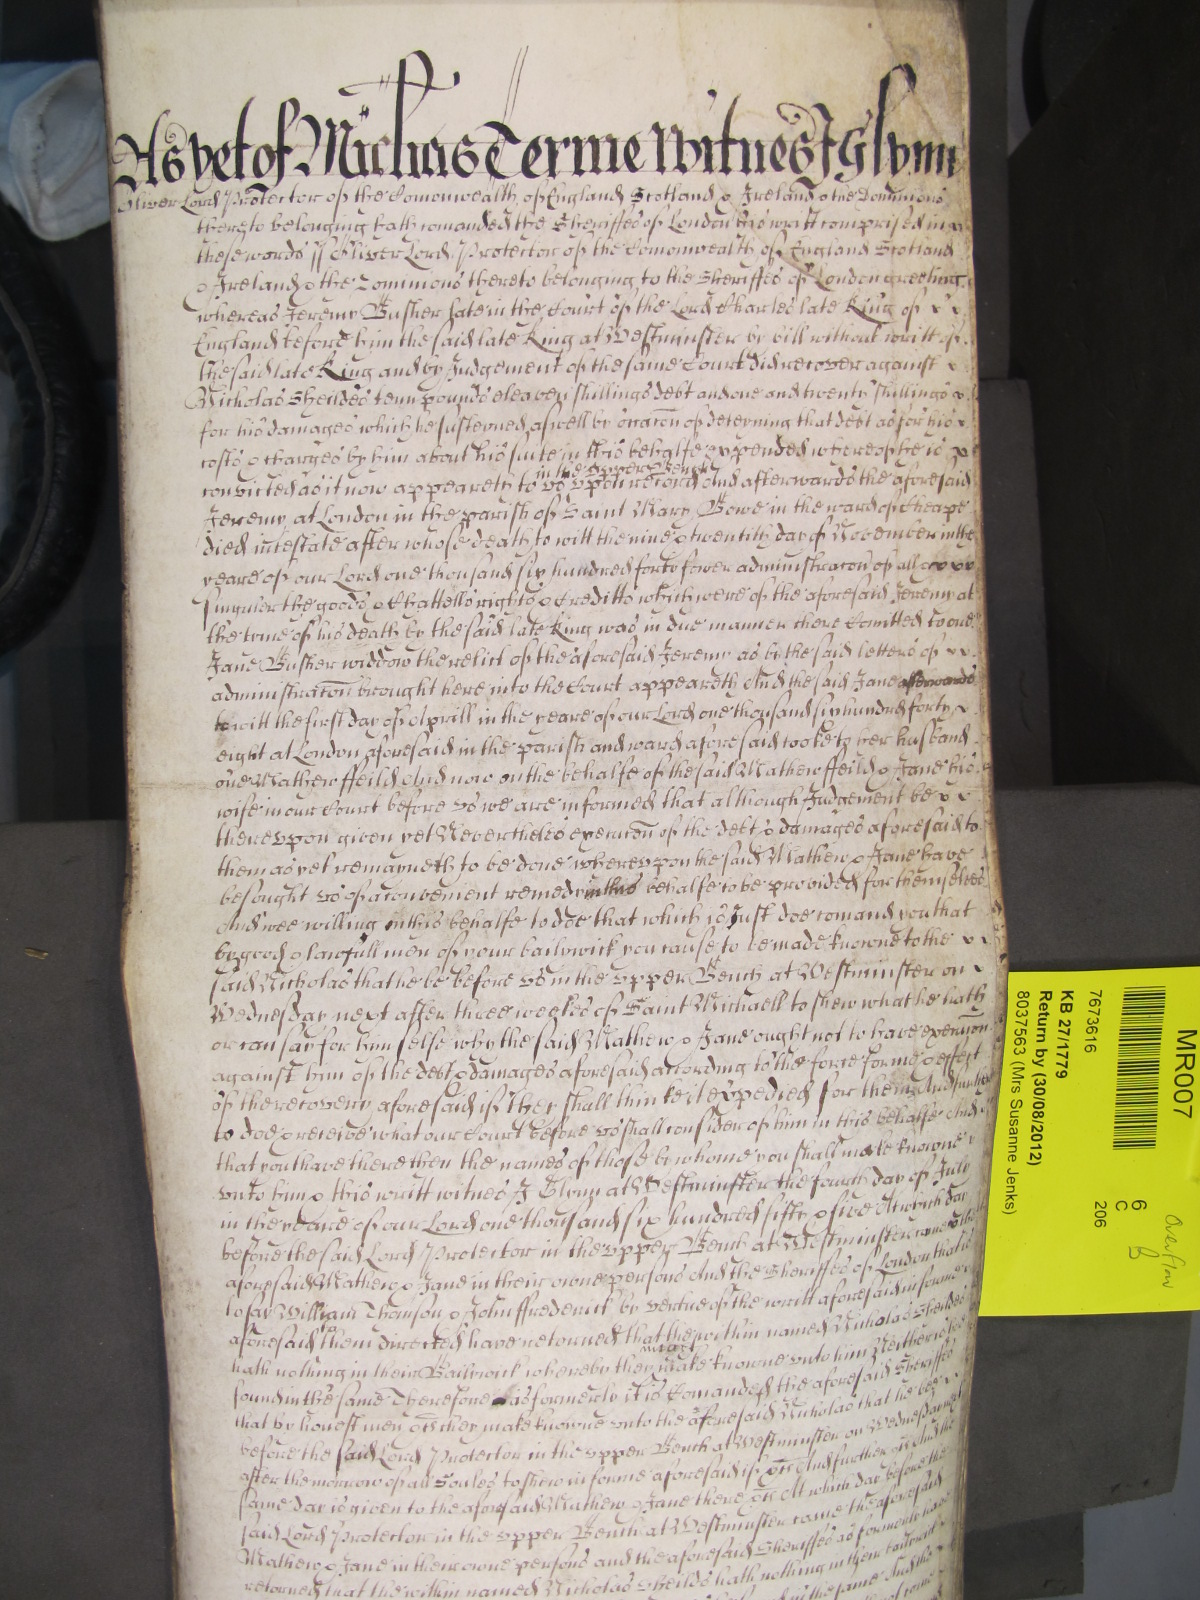 As yet of Michas Terme Witnes J Glynn
Oliver Lord Protector of the Comonwealth of England Scotland & Ireland & the Dominions
thereto belonging hath comanded the Sheriffes of London his writt comprised in
these words ss Oliver Lord Protector of the Comonwealth of England Scotland
& Ireland & the Dominions thereto belonging to the Sheriffes of London greeting
whereas Jeremy Busher late in the Court of the Lord Charles late King of
England before him the said late King at Westminster by bill without writt of
the said late King and by Judgement of the same Court did recover against
Nicholas Sheildes tenn pounds eleaven shillings debt and one and twenty shillings
for his damages which he susteyned aswell by occacon of deteyning that debt as for his
costs & charges by him about his suite in this behalfe expended whereof he is
convicted as it now appeareth to us in the Upper Bench upon record And afterwards the aforesaid
Jeremy at London in the parish of Saint Mary Bowe in the ward of Cheape
died intestate after whose death to witt the nine & twentith day of November in the
yeare of our Lord one thousand six hundred forty fower administracon of all &
singuler the goods & Chattells rights & Creditts which were of the aforesaid Jeremy at
the tyme of his death by the said late King was in due manner there Comitted to one
Jane Busher widdow the relict of the aforesaid Jeremy as by the said letters of
administracon brought here into the Court appeareth And the said Jane afterwards
to witt the first day of Aprill in the yeare of our Lord one thousand six hundred forty
eight at London aforesaid in the parish and ward aforesaid tooke to her husband
one Mathew ffeild And now on the behalfe of the said Mathew ffeild & Jane his
wife in our Court before us we are informed that although Judgement be
thereupon given yet Neverthelesse execucon of the debt & damages aforesaid to
them as yet remayneth to be done whereupon the said Mathew & Jane have
besought us of a convenient remedy in this behalfe to be provided for themselves
And wee willing in this behalfe to doe that which is Just doe comand you that
by good & lawfull men of your bailywick you cause to be made knowne to the
said Nicholas that he be before us in the Upper Bench at Westminster on
Wednesday next after three weekes of Saint Michaell to shew what he hath
or can say for himselfe why the said Mathew & Jane ought not to have execucon
against him of the debt & damages aforesaid according to the force forme & effect
of the recovery aforesaid if they shall thinke it expedient for them And further
to doe & receive what our Court before us shall consider of him in this behalfe And
that you have there then the names of those by whome you shall make knowne
unto him & this writt witnes J Glynn at Westminster the fourth day of July
in the yeare of our Lord one thousand six hundred fifty & five At which day
before the said Lord Protector in the Upper Bench at Westminster came the
aforesaid Mathew & Jane in their owne persons And the Sheriffes of London that is
to say William Thomson & John ffrederick by vertue of the writt aforesaid in forme
aforesaid to them directed have returned that the within named Nicholas Sheildes
hath nothing in their Bailywick whereby they might make knowne unto him Neither is hee
found in the same Therefore as formerly it is Comanded the aforesaid Sheriffes
that by honest men &c they make knowne unto the aforesaid Nicholas that he bee
before the said Lord Protector in the Upper Bench at Westminster on Wednesday next
after the morrow of all Soules to shew in forme aforesaid if &c And further &c And the
same day is given to the aforesaid Mathew & Jane there &c At which day before the
said Lord Protector in the Upper Bench at Westminster came the aforesaid
Mathew & Jane in their owne persons and the aforesaid Sheriffes as formerly have
returned that the within named Nicholas Sheilds hath nothing in their bailywick
in the same And the
MR007
6
C
206
7673616
KB 27/1779
Return by (30/08/2012)
8037563 (Mrs Susanne Jenks)
Overflow
B